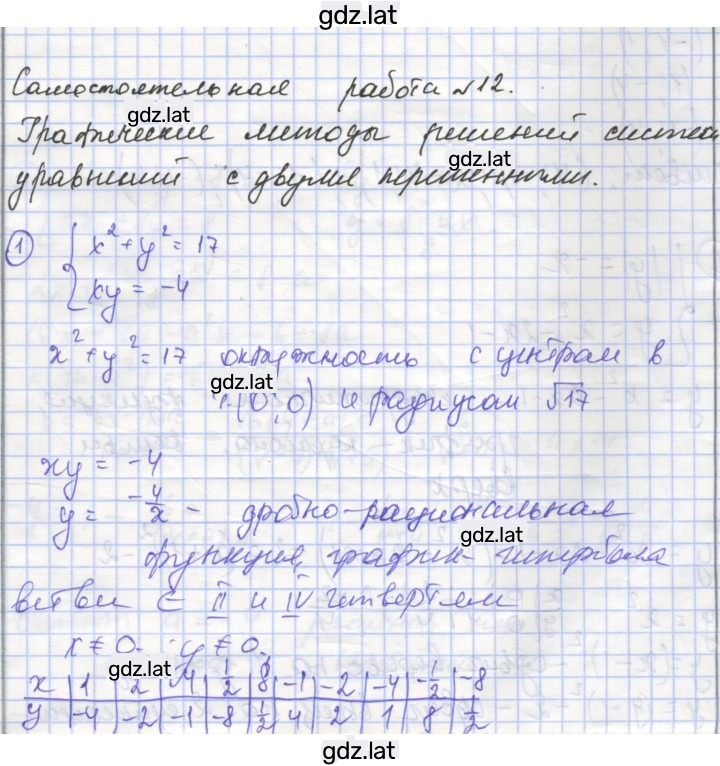 gdz.lat
Самостоятельная работа №12.
gdz.lat
Графические методы решений систем
gdz.lat
уравнений с двумя переменными.
① { x² + y² = 17
xy = -4
x² + y² = 17 окружность с центром в
gdz.lat
(0; 0) и радиусом √17
xy = -4
y = -4/x - дробно-рациональная
gdz.lat
функция, график - гипербола
ветви ∈ II и IV четвертям
x ≠ 0. y ≠ 0.
gdz.lat
x | 1 | 2 | 4 | 1/2 | 8 | -1 | -2 | -4 | -1/2 | -8
y | -4 | -2 | -1 | -8 | 1/2 | 4 | 2 | 1 | 8 | 1/2
gdz.lat